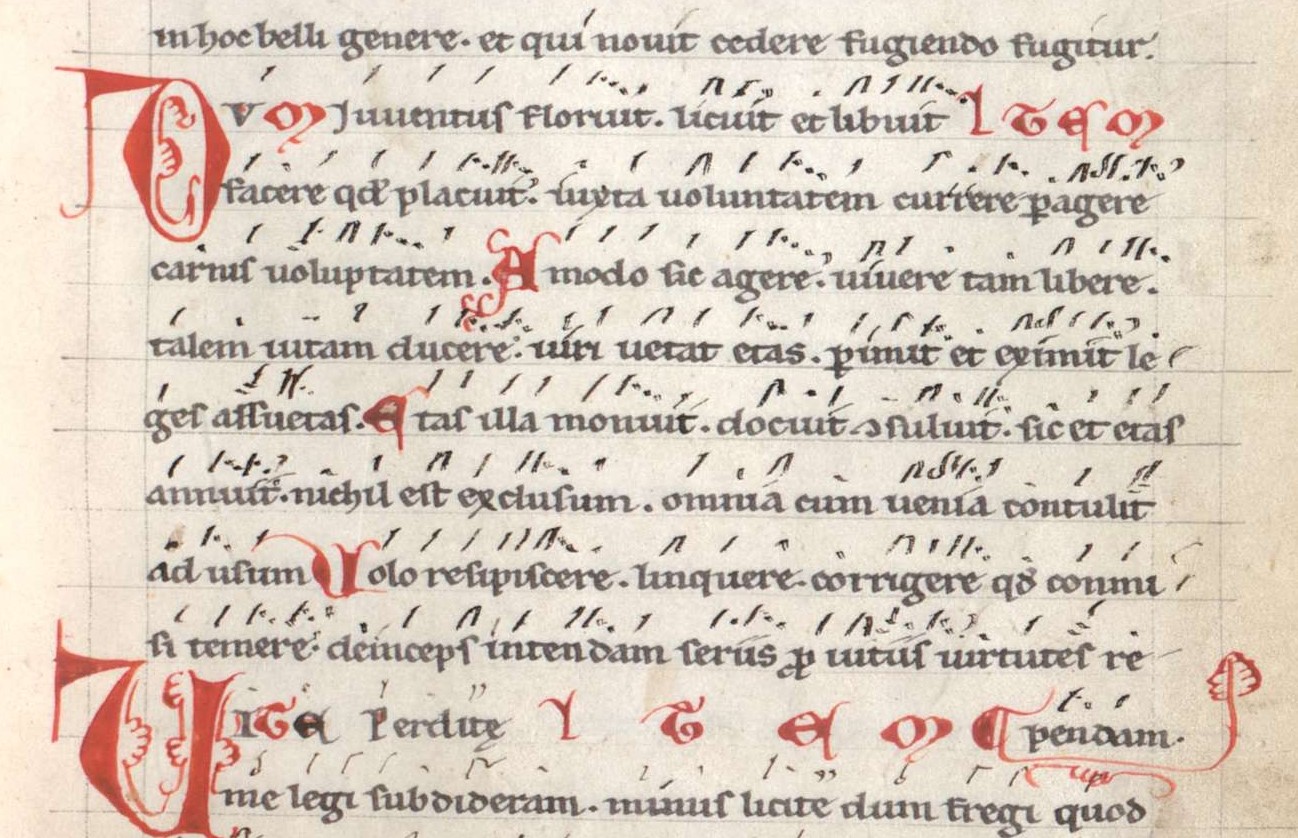 in hoc belli genere. et qui nouit cedere fugiendo fugitur.
DVM Iuuentus floruit. licuit et libuit ITEM
facere qd placuit. iuxta uoluntatem currere pagere
carnis uoluptatem. Amodo sic agere. uiuere tam libere.
talem uitam ducere. uiri uetat etas. pimit et eximit le
ges assuetas. Etas illa monuit. docuit ɔsuluit. sic et etas
annuit. nichil est exclusum. omnia cum uenia contulit
ad usum Volo resipiscere. linquere. corrigere qd conmi
si temere. deinceps intendam seriis ꝓ uitiis uirtutes re
VITE Perditę ITEM pendam.
me legi subdideram. minus licite dum fregi quod